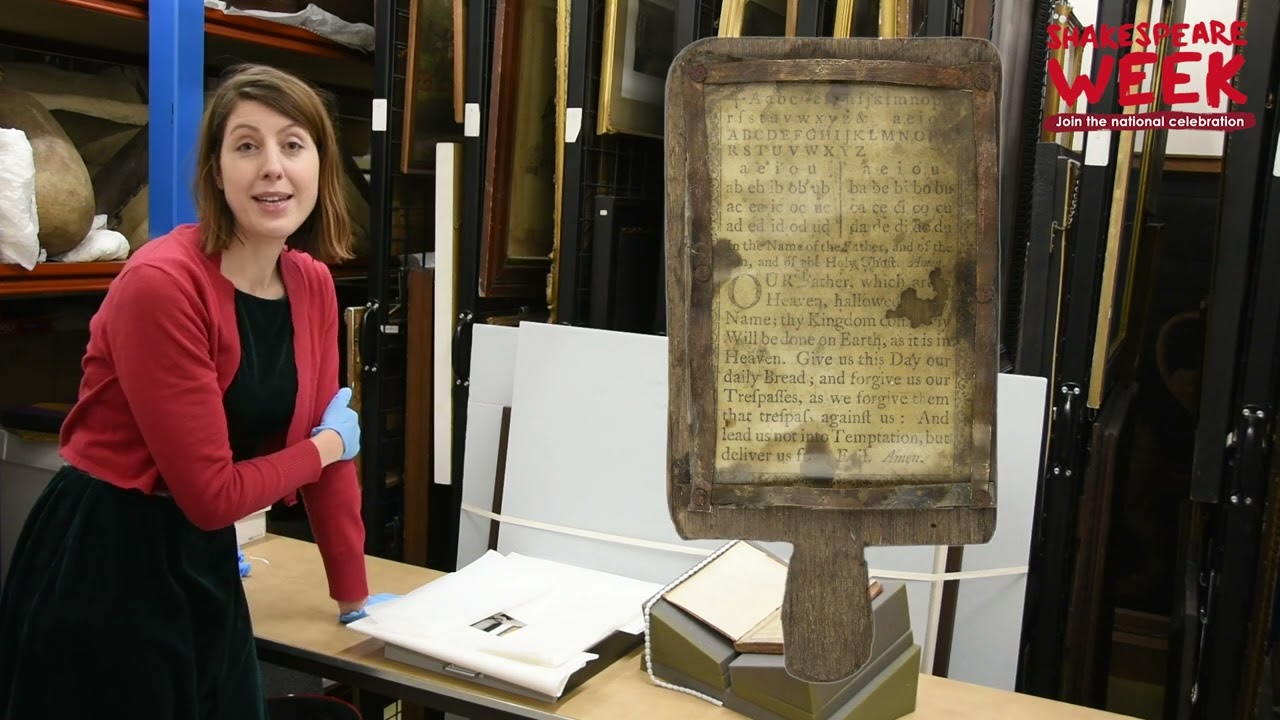 SHAKESPEARE
WEEK
Join the national celebration
rſstuvwxyz& aeiou
ABCDEFGHIJKLMNOP
RSTUVWXYZ
aeiou aeiou
ab eb ib ob ub ba be bi bo bu
ac ec ic oc uc ca ce ci co cu
ad ed id od ud da de di do du
in the Name of the Father, and of the
and of the Holy Ghoſt. Amen.
OUR Father, which are in
Heaven, hallowed
Name; thy Kingdom com
Will be done on Earth, as it is in
Heaven. Give us this Day our
daily Bread; and forgive us our
Treſpaſſes, as we forgive them
that treſpaſs againſt us: And
lead us not into Temptation, but
deliver us Amen.